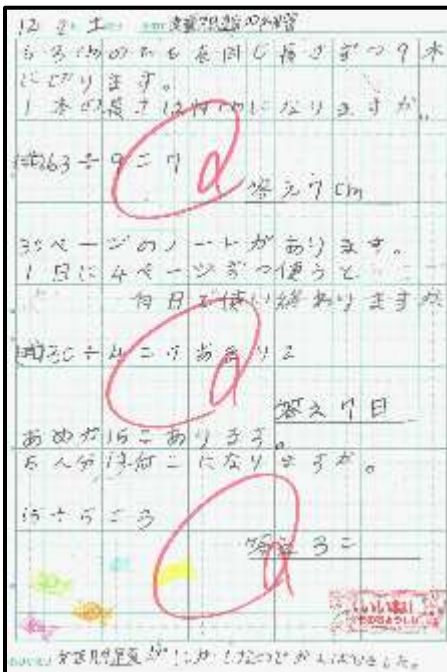 12 2 土
63cmのひもを同じ長さずつ9本
に切ります。
1本の長さは何cmになりますか。
(式)63÷9=7
答え7cm
30ページのノートがあります。
1日に4ページずつ使うと
何日で使い終わりますか
(式)30÷4=7あまり2
答え7日
あめが15こあります。
5人分は何こになりますか。
15÷5=3
答え3こ
いいね!